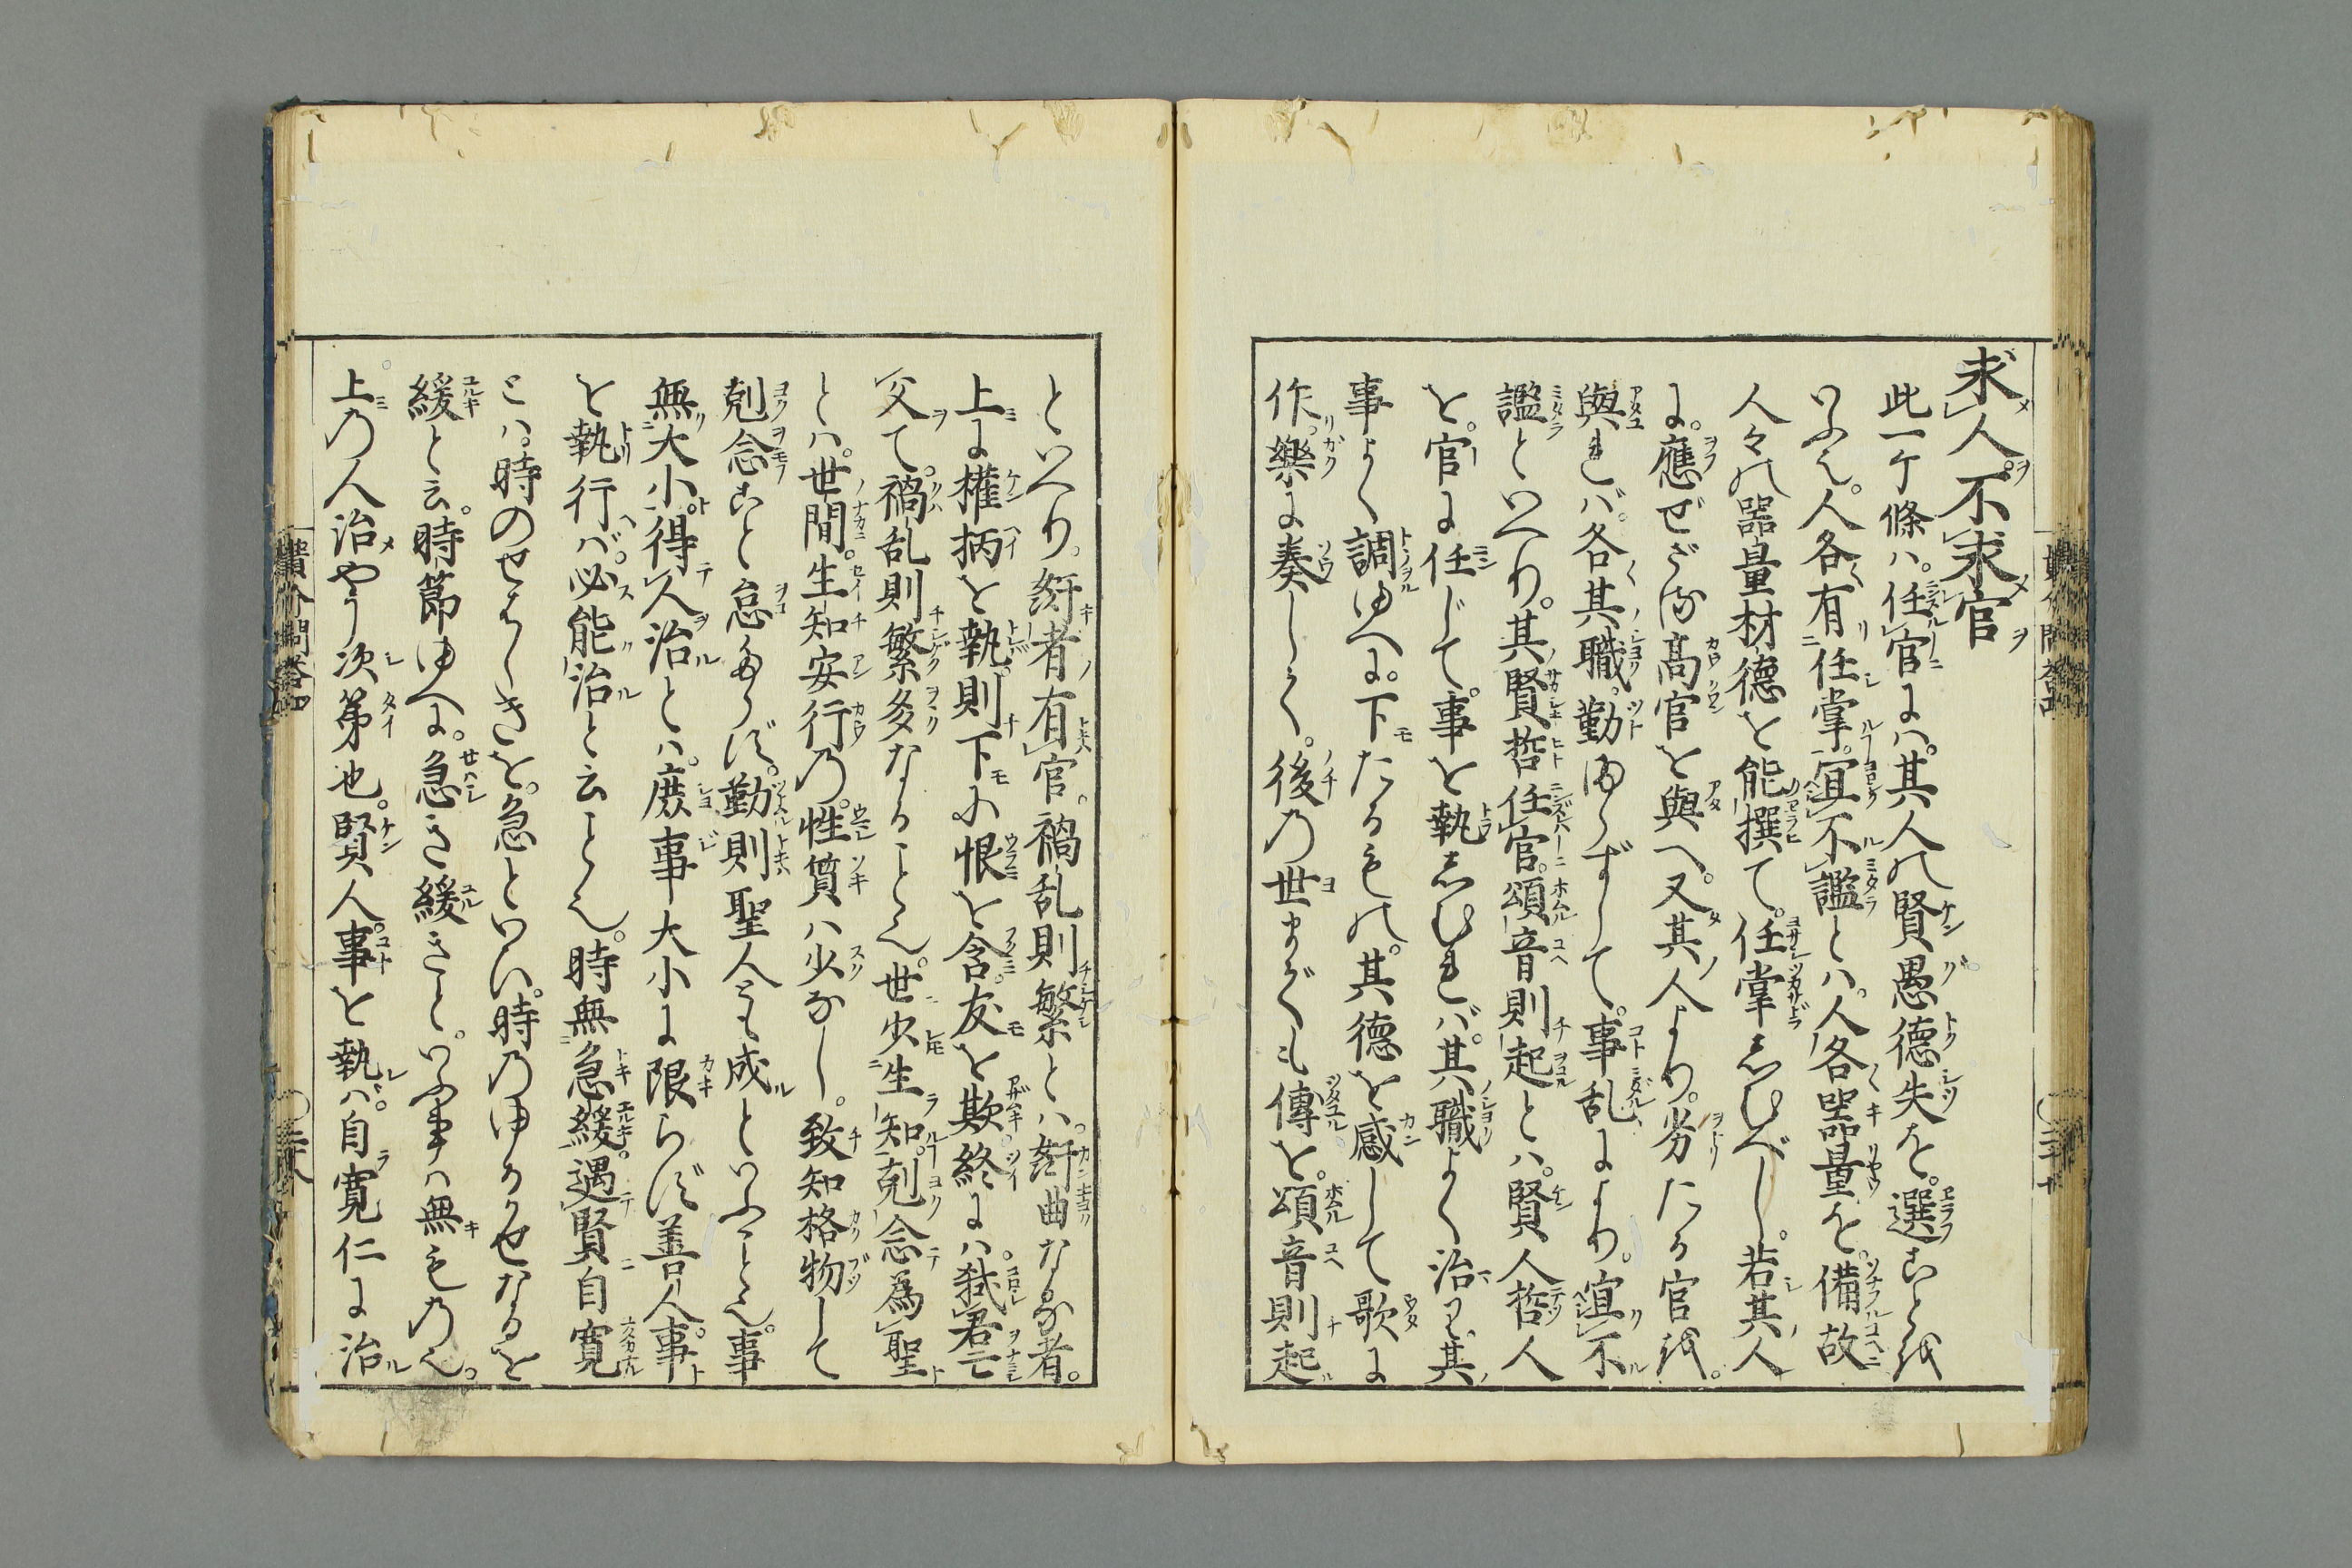 求人不求官
此一ケ條ハ。任官にハ。其人の賢愚德失を。選ふこと
いふ也。人各有任掌。宜不濫とハ。人各器量を。備故
人々の器量材德を能撰て。任掌しむべし。若其人
に。應ぜざる高官を與へ。又其人より。劣たる官を。
與れバ。各其職。勤まらずして。事乱により。宜不
濫といへり。其賢哲任官。頌音則起とハ。賢人哲人
を。官に任じて。事を執しむれバ。其職よく治り。其
事よく調ゆへに。下たるもの。其德を感して歌に
作。樂に奏しく。後の世までも傳を。頌音則起
といへり。奸者有官。禍乱則繁とハ。奸曲なる者。
上に權柄を執。則下に恨を含。友を欺。終にハ。弑君亡
父て。禍乱則繁多なること也。世少生知。剋念為聖
とハ。世間。生知安行の。性質ハ少なし。致知格物して
剋念こと怠ならず。勤則聖人とも成といふこと也。事
無大小。得人治とハ。庶事大小に限らず善人。事
を執行バ。必能治と云こと也。時無急緩。遇賢自寛
とハ。時のせはしきを。急といひ。時のゆるかせなるを
緩と云。時節ゆへに。急き緩きと。いふ事ハ無もの也。
上の人治やう次第也。賢人事を執バ。自寛仁に治